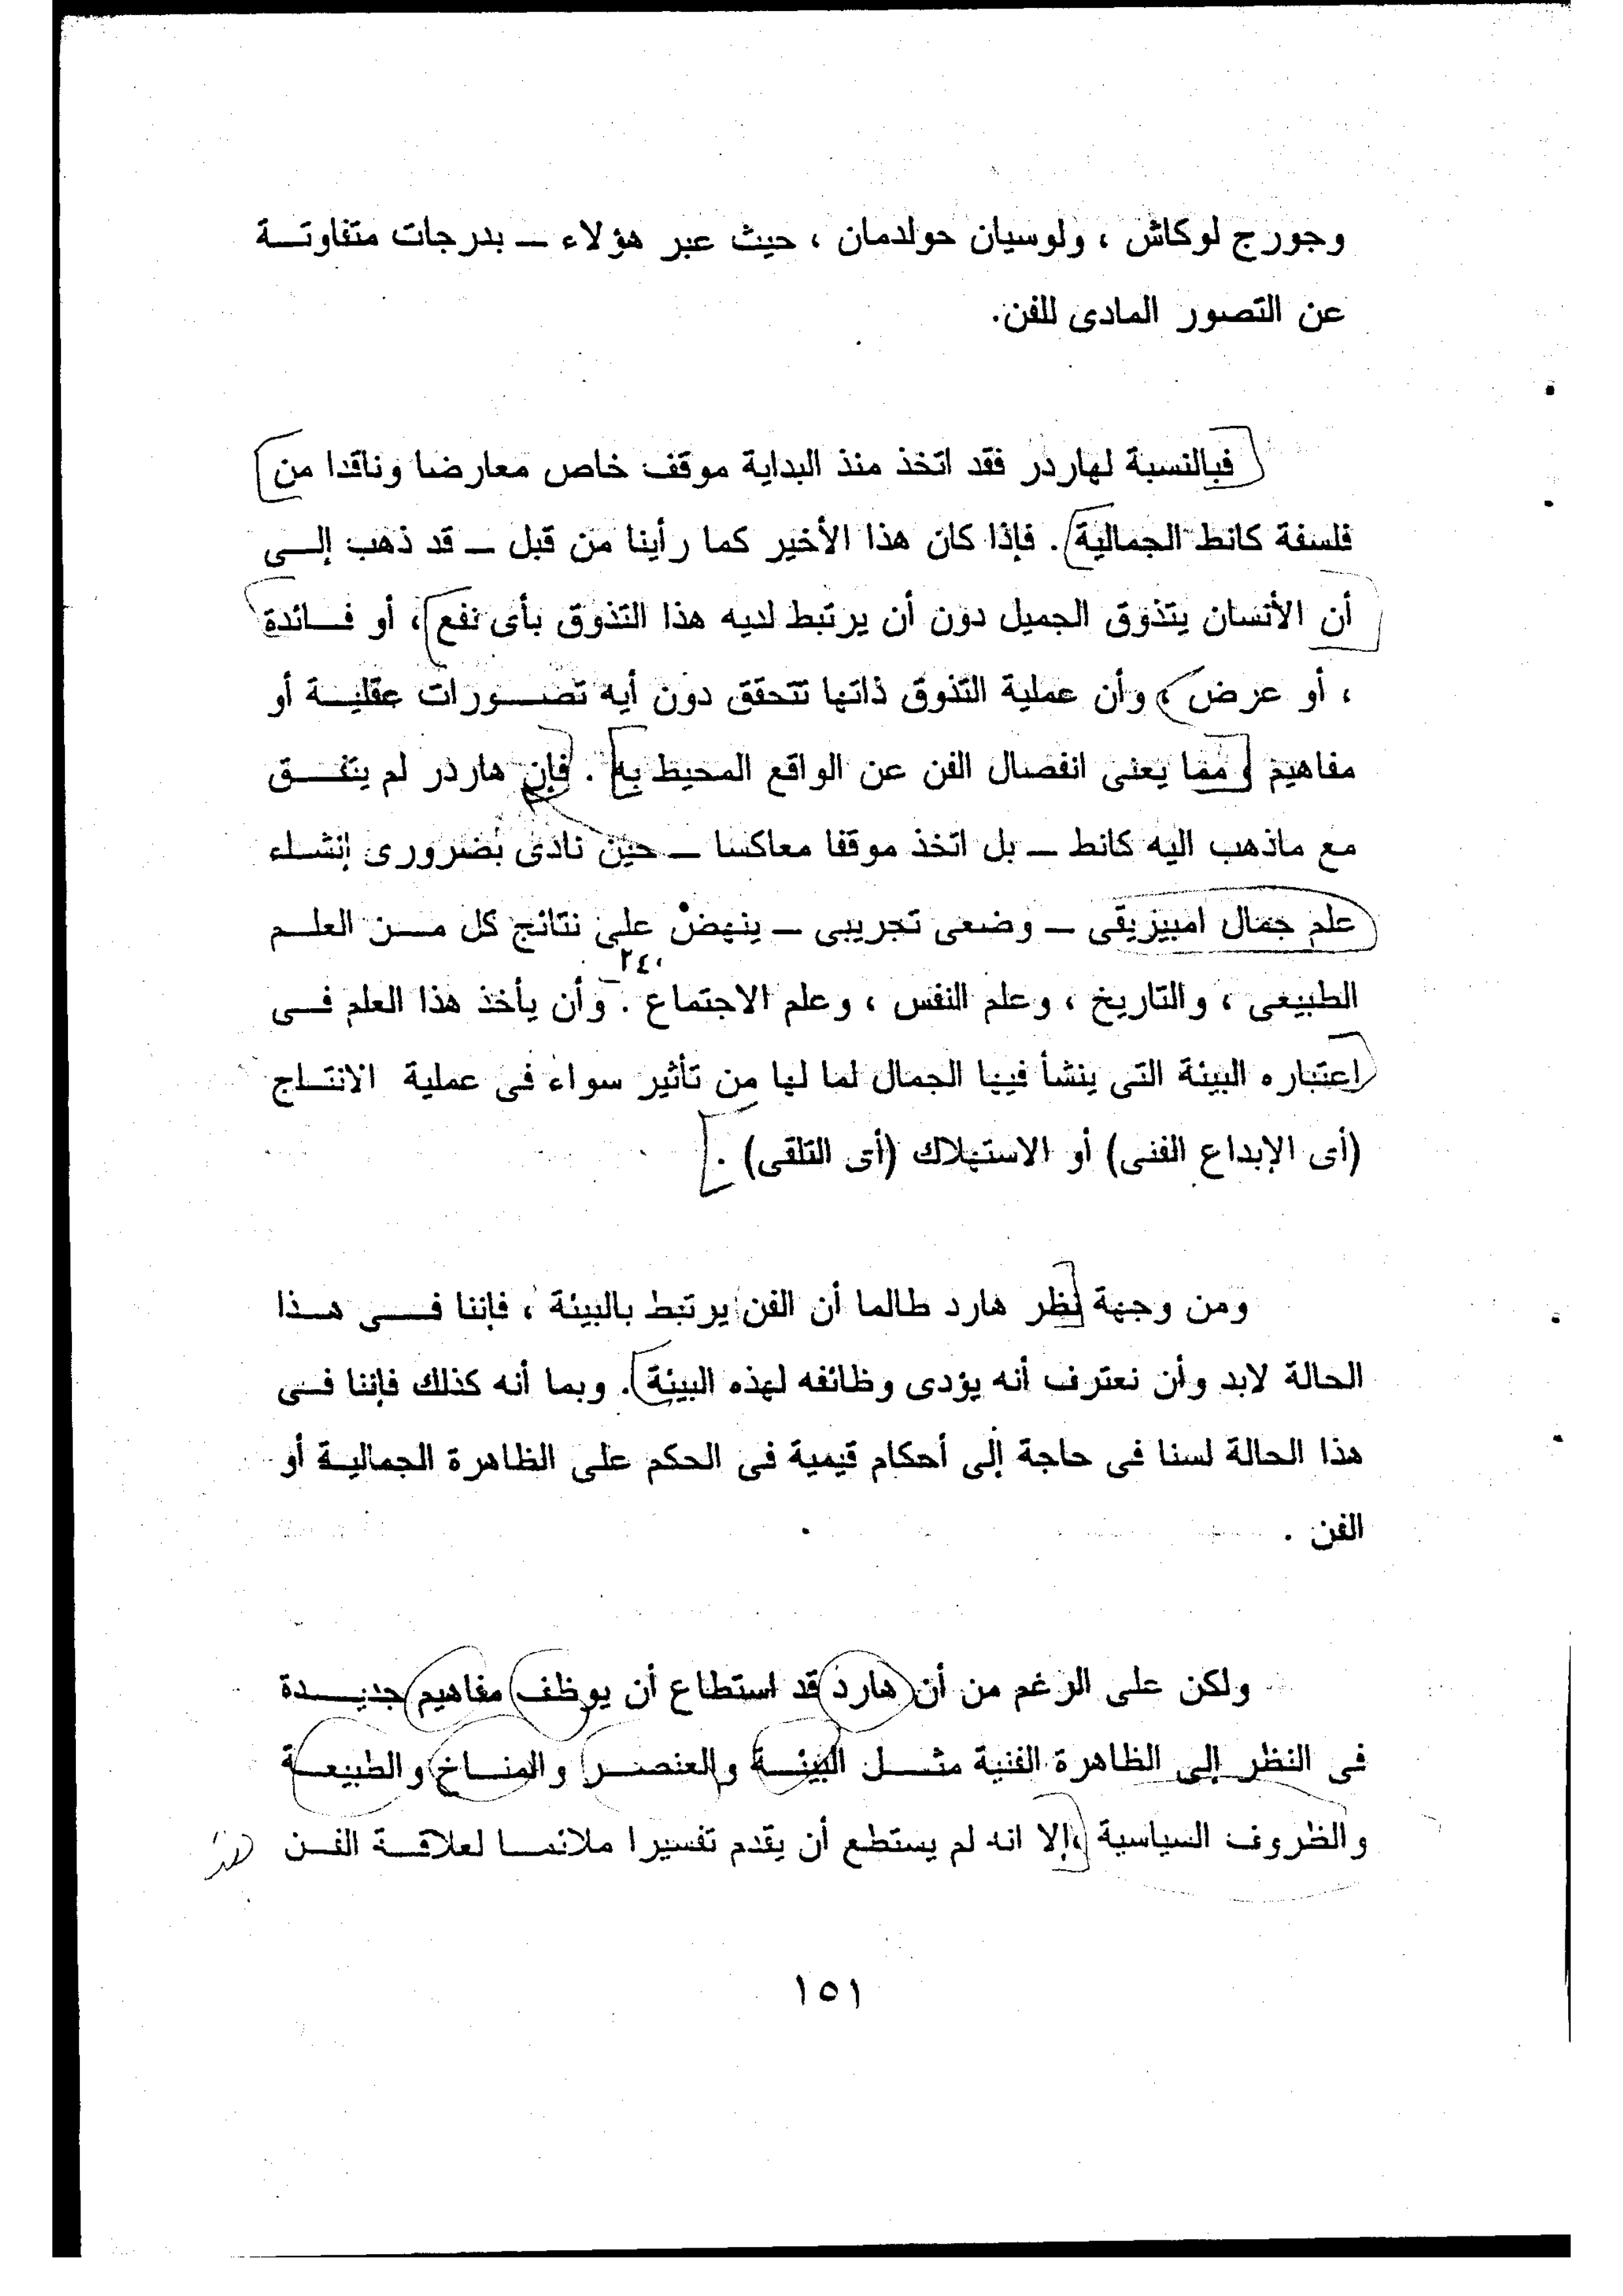 وجورج لوكاش ، ولوسيان حولدمان ، حيث عبر هؤلاء – بدرجات متفاوتة
عن التصور المادى للفن.
فبالنسبة لهاردر فقد اتخذ منذ البداية موقف خاص معارضا وناقدا من
فلسفة كانط الجمالية . فإذا كان هذا الأخير كما رأينا من قبل – قد ذهب إلى
أن الأنسان يتذوق الجميل دون أن يرتبط لديه هذا التذوق بأى نفع ، أو فائدة
، أو عرض ، وأن عملية التذوق ذاتها تتحقق دون أيه تصورات عقلية أو
مفاهيم ، مما يعنى انفصال الفن عن الواقع المحيط به . فإن هاردر لم يتفق
مع ماذهب اليه كانط – بل اتخذ موقفا معاكسا – حين نادى بضرورى إنشاء
علم جمال امبيزيقى – وضعى تجريبى – ينهض على نتائج كل من العلم
٢٤٠
الطبيعى ، والتاريخ ، وعلم النفس ، وعلم الاجتماع . وأن يأخذ هذا العلم فى
اعتباره البيئة التى ينشأ فيها الجمال لما لها من تأثير سواء فى عملية الانتاج
(أى الإبداع الفنى) أو الاستهلاك (أى التلقى) .
ومن وجهة نظر هارد طالما أن الفن يرتبط بالبيئة ، فإننا فى هذا
الحالة لابد وأن نعترف أنه يؤدى وظائفه لهذه البيئة . وبما أنه كذلك فإننا فى
هذا الحالة لسنا فى حاجة إلى أحكام قيمية فى الحكم على الظاهرة الجمالية أو
الفن .
ولكن على الرغم من أن هارد قد استطاع أن يوظف مفاهيم جديدة
فى النظر إلى الظاهرة الفنية مثل البيئة والعنصر والمناخ والطبيعة
والظروف السياسية ، إلا انه لم يستطع أن يقدم تفسيرا ملائما لعلاقة الفن
١٥١